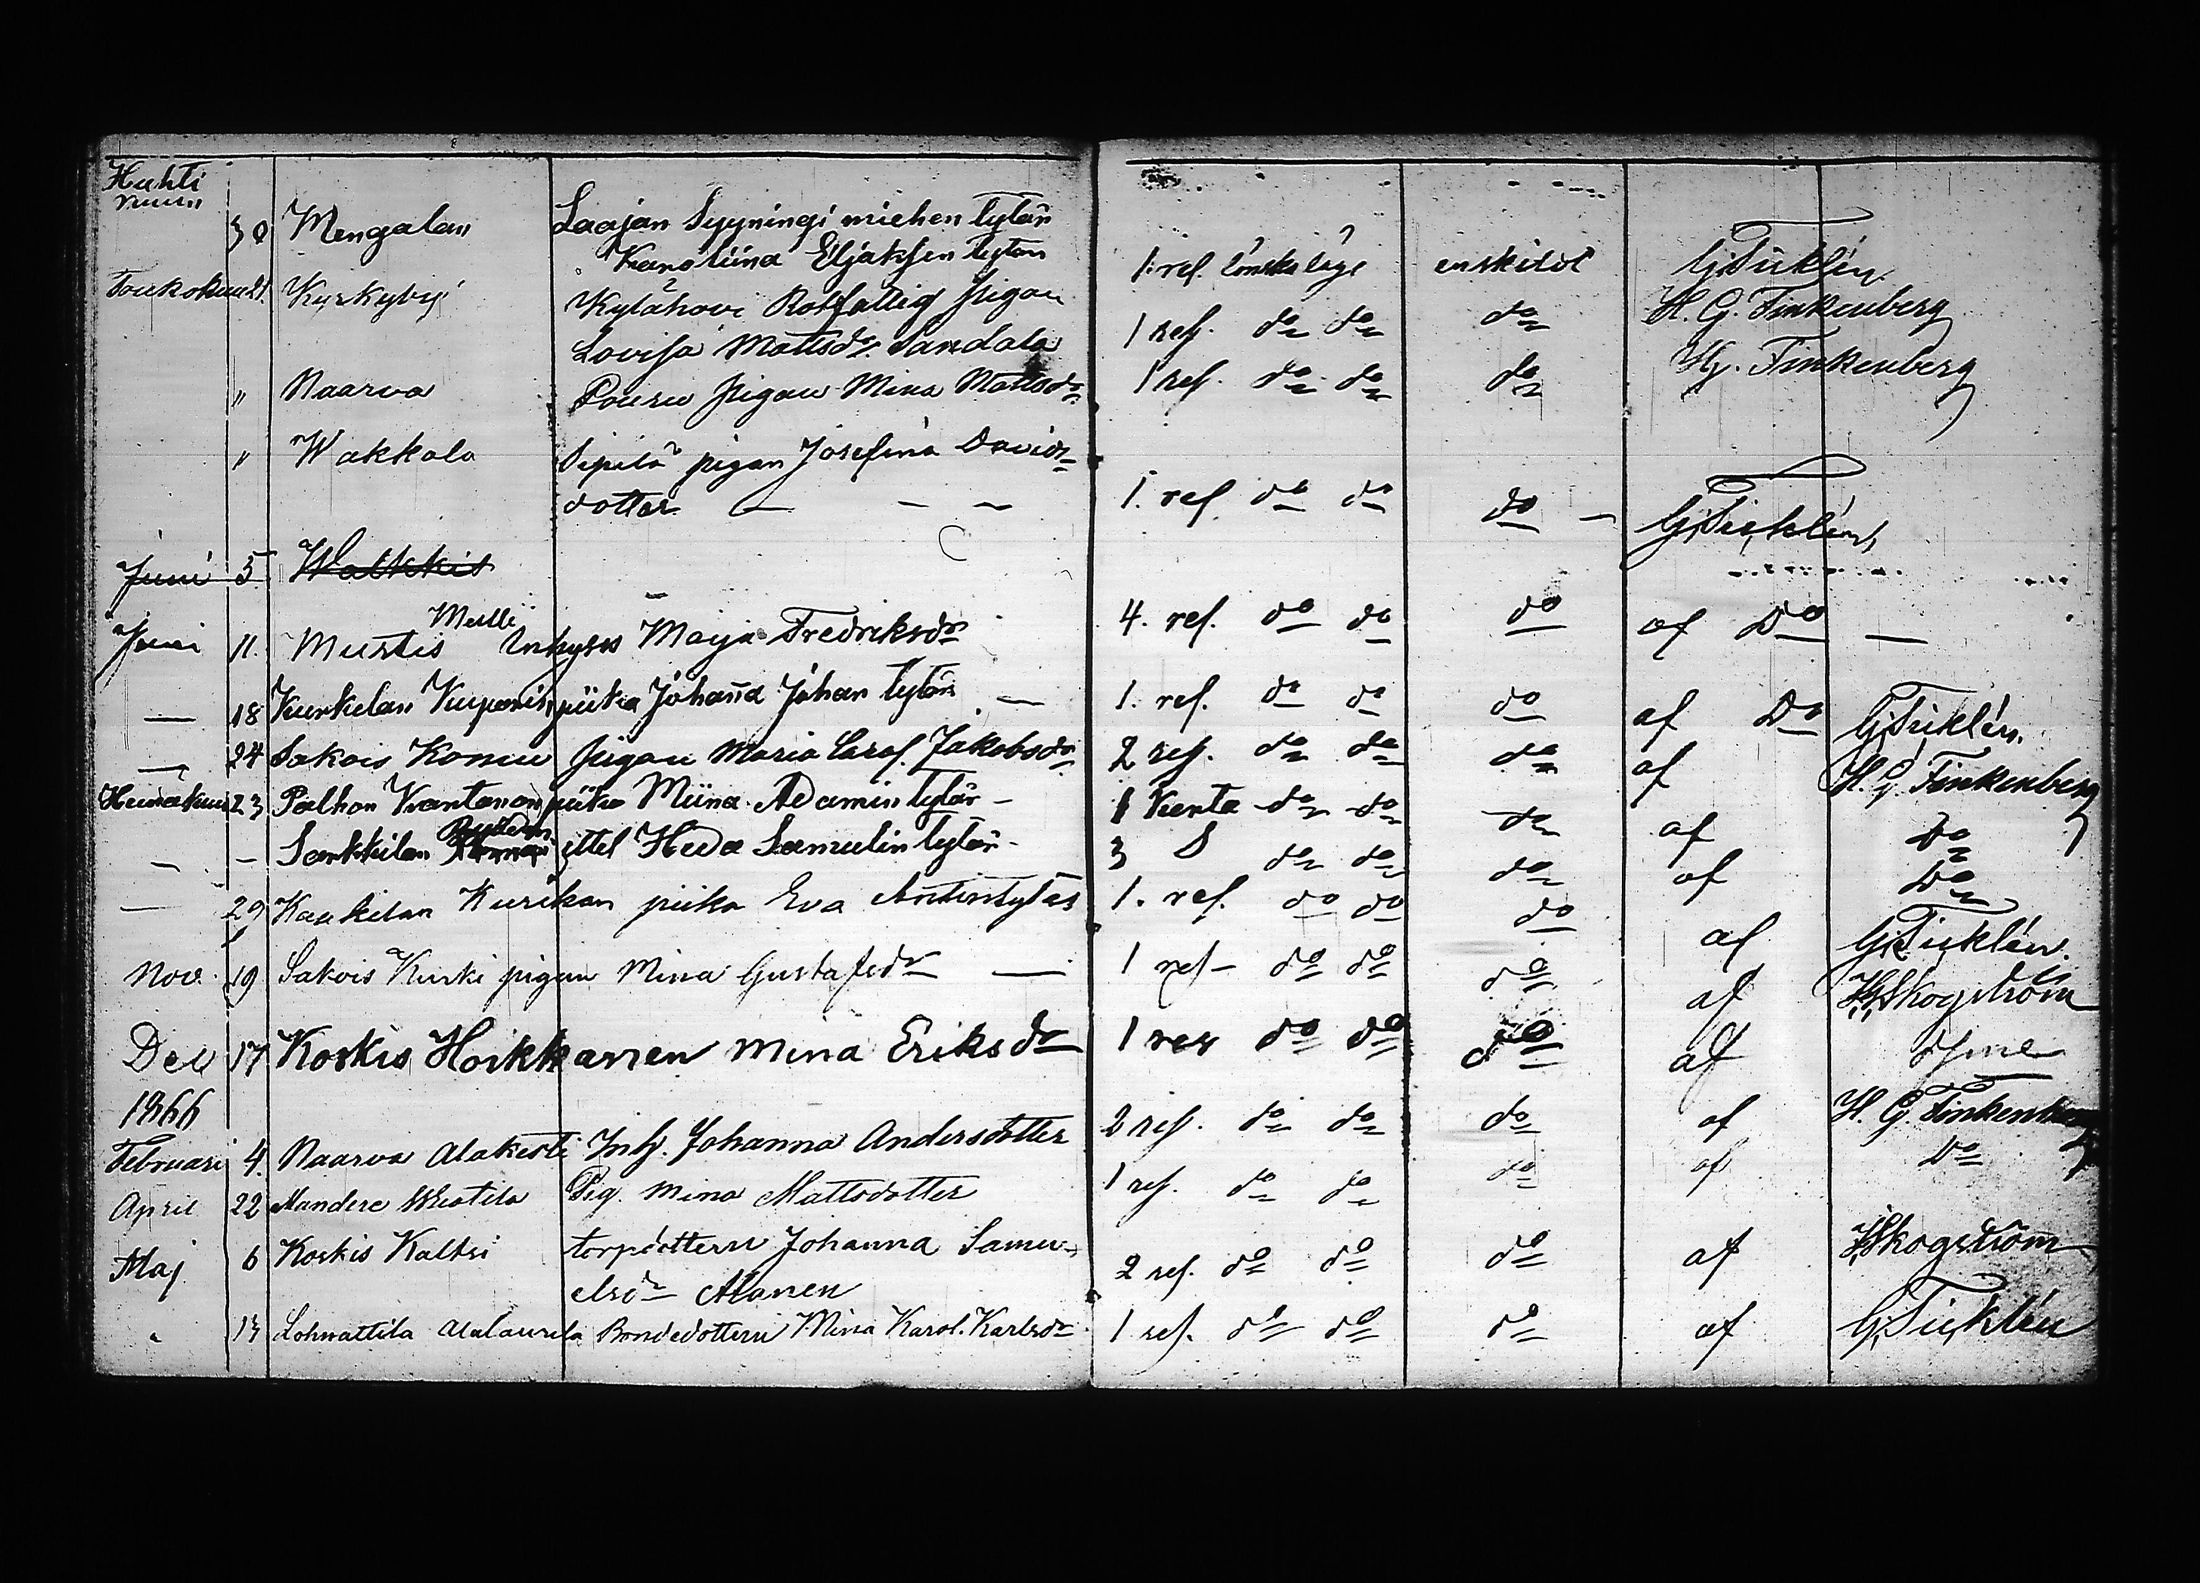 Huhti
kuun
30 Mengalan Laajan Syyningi miehen tytär
Karoliina Eljaksen tytär 1. ref. lönskaläge enskildt G. Ticklén
Toukokuu 21. Kyrkyby Kylähovi Rotfattig Pigan 1 ref. do do do H. G. Finkenberg
Lovisa Mattsdr. Sandala
" Naarva Pouru Pigan Mina Mattsdr. 1 ref. do do do Hj. Finkenberg
" Wakkola Sipilä pigan Josefina Davids-
dotter — — — 1. ref. do do do — G. Ticklén
Juni 5 Walkkis
Juni 11. Murtis Mulli Inhyses Maija Fredriksdr 4. ref. do do do af Do —
— 18 Kurkelan Kuparin piika Johanna Johan tytär — 1. ref. do do do af Do G. Ticklén.
— 24 Sakois Komu Pigan Maria Carol. Jakobsdr 2 ref. do do do af H. G. Finkenberg
Heinäkuu 23 Palhon Krantanon piika Miina Adamin tytär — 1 Kerta do do do af Do
— — Sarkkilan ittel Heda Samulin tytär — 3 S do do do af Do
— 29 Kaukilan Kurikan piika Eva Antintytär 1. ref. do do do af G. Ticklén.
Nov. 19 Sakois Kurki pigan Mina Gustafsdr — 1 ref — do do do af Hj Skogström
Dec 17 Koskis Hoikkanen Mina Eriksdr 1 rer do do do af dsme
1866
Februari 4. Naarva Alakerti Inh. Johanna Andersdotter 2 ref. do do do af H. G. Finkenberg
April 22 Mandere Pig. Mina Mattsdotter 1 ref. do do do af Do
Maj 6 Koskis Kaltsi torpdottern Johanna Samu-
elsdr Alanen 2 ref. do do do af Hj Skogström
" 13 Lohnattila Alalaurila Bondedottern Mina Karol. Karlsdr. 1 ref. do do do af G. Ticklén